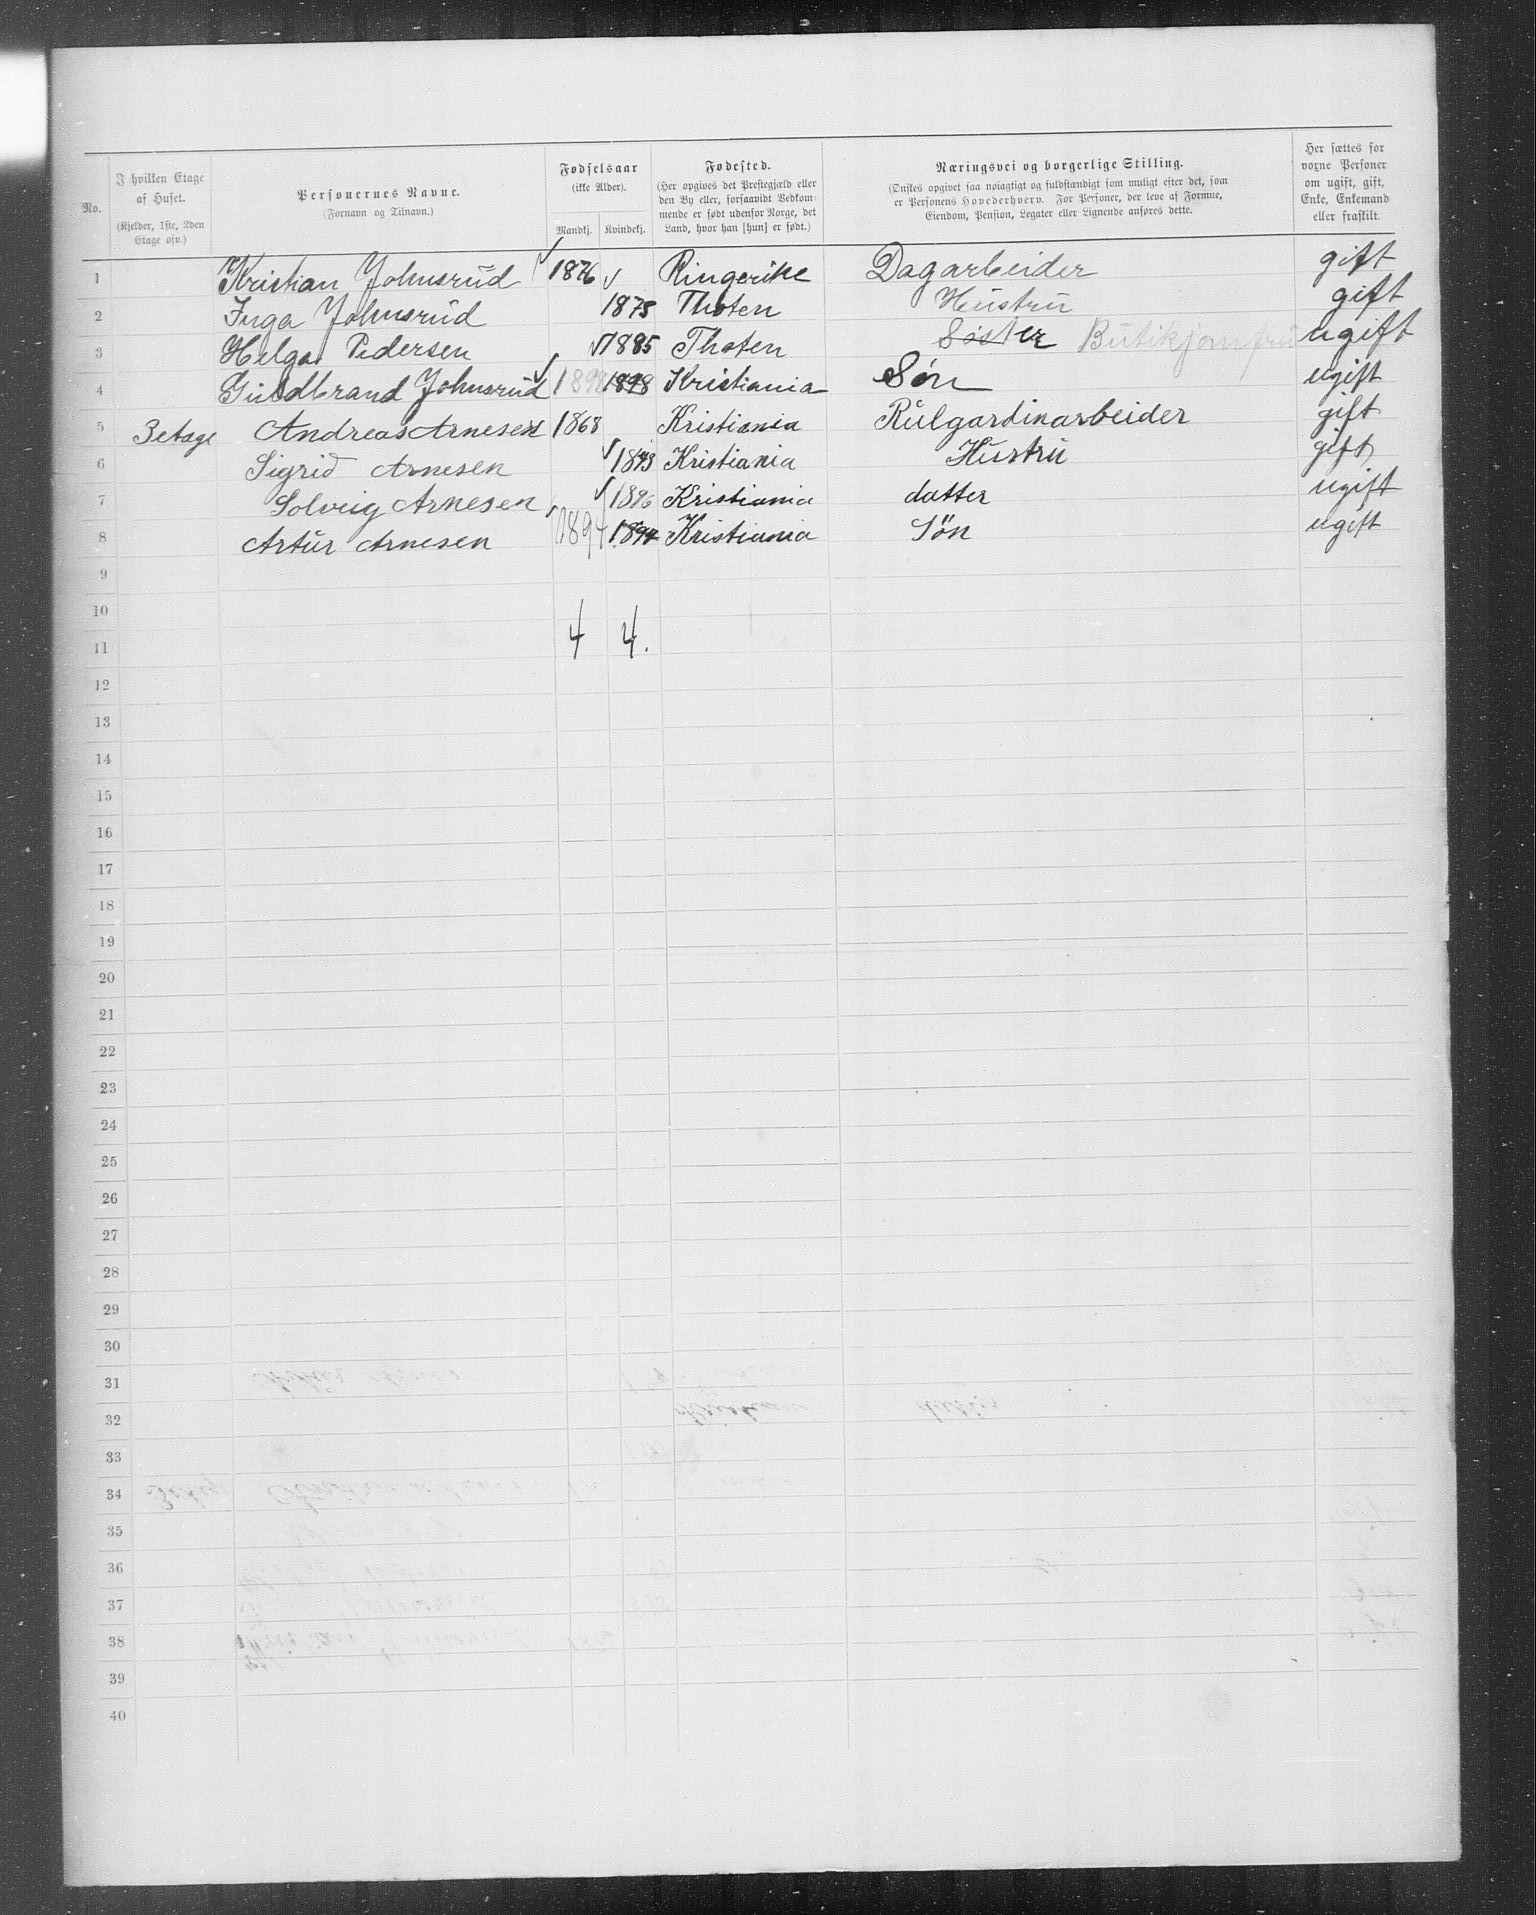 No. | I hvilken Etage af Huset. (Kjelder, 1ste, 2den Etage osv.) | Personernes Navne. (Fornavn og Tilnavn.) | Fødselsaar (ikke Alder). Mandkj. | Kvindekj. | Fødested. (Her opgives det Prestegjæld eller den By eller, forsaavidt Vedkommende er født udenfor Norge, det Land, hvor han [hun] er født.) | Næringsvei og borgerlige Stilling. (Ønskes opgivet saa nøiagtigt og fuldstændigt som muligt efter det, som er Personens Hovederhverv. For Personer, der leve af Formue, Eiendom, Pension, Legater eller Lignende anføres dette.) | Her sættes for voxne Personer om ugift, gift, Enke, Enkemand eller fraskilt.
1 Kristian Johnsrud 1876 Ringerike Dagarbeider gift
2 Inga Johnsrud 1875 Thoten Hustru gift
3 Helga Pedersen 1885 Thoten Søster Butikjomfru ugift
4 Guldbrand Johnsrud 1898 1898 Kristiania Søn ugift
5 3 etage Andreas Arnesen 1868 Kristiania Rulgardinarbeider gift
6 Sigrid Arnesen 1873 Kristiania Hustru gift
7 Solveig Arnesen 1896 Kristiania datter ugift
8 Artur Arnesen 1894 1894 Kristiania Søn ugift
9
10
11 4 4.
12
13
14
15
16
17
18
19
20
21
22
23
24
25
26
27
28
29
30
31
32
33
34
35
36
37
38
39
40